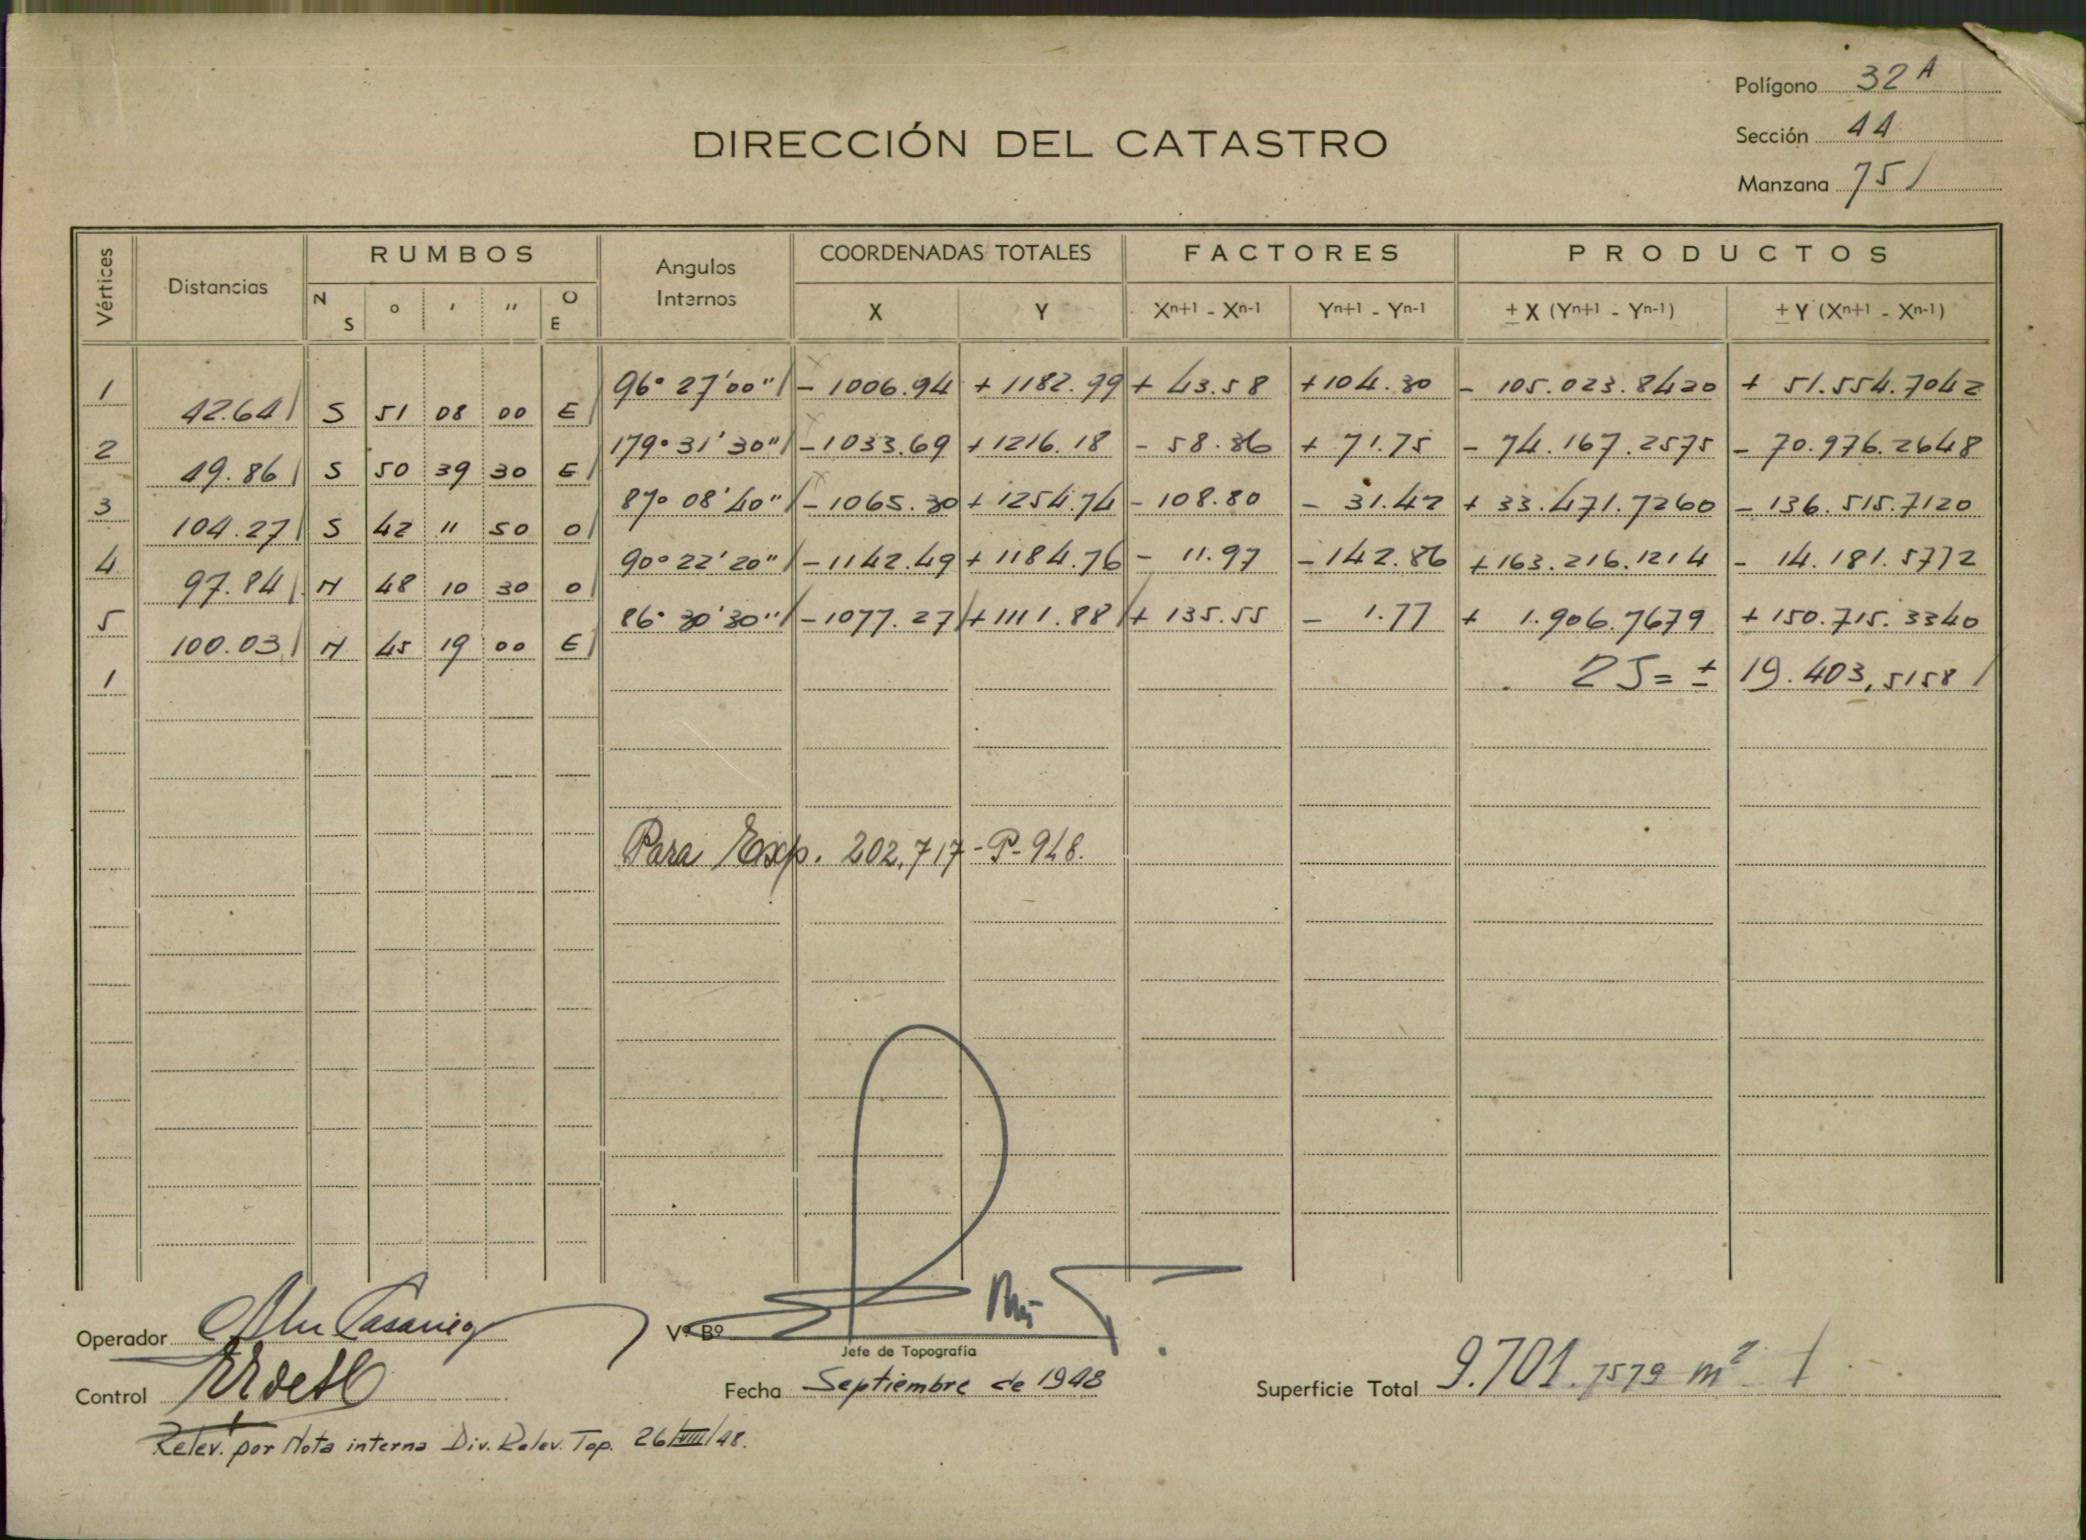 Polígono 32 A
Sección 44
Manzana 751
DIRECCIÓN DEL CATASTRO
Vértices Distancias RUMBOS Angulos Internos COORDENADAS TOTALES FACTORES PRODUCTOS
N S o ' " O E X Y Xn+1 - Xn-1 Yn+1 - Yn-1 ± X (Yn+1 - Yn-1) ± Y (Xn+1 - Xn-1)
1 96° 27' 00" - 1006.94 + 1182.99 + 43.58 + 104.30 - 105.023.8420 + 51.554.7042
42.64 S 51 08 00 E
2 179° 31' 30" - 1033.69 + 1216.18 - 58.36 + 71.75 - 74.167.2575 - 70.976.2648
49.86 S 50 39 30 E
3 87° 08' 40" - 1065.30 + 1254.74 - 108.80 - 31.42 + 33.471.7260 - 136.515.7120
104.27 S 42 11 50 O
4 90° 22' 20" - 1142.49 + 1184.76 - 11.97 - 142.86 + 163.216.1214 - 14.181.5772
97.84 N 48 10 30 O
5 86° 30' 30" - 1077.27 + 1111.88 + 135.55 - 1.77 + 1.906.7679 + 150.715.3340
100.03 N 45 19 00 E
1 2S = ± 19.403,5158
Para Exp. 202.717 - P - 948.
Operador
Vº Bº
Jefe de Topografía
Control
Fecha Septiembre de 1948
Superficie Total 9.701.7579 m²
Relev. por Nota interna Div. Relev. Top. 26/VIII/48.